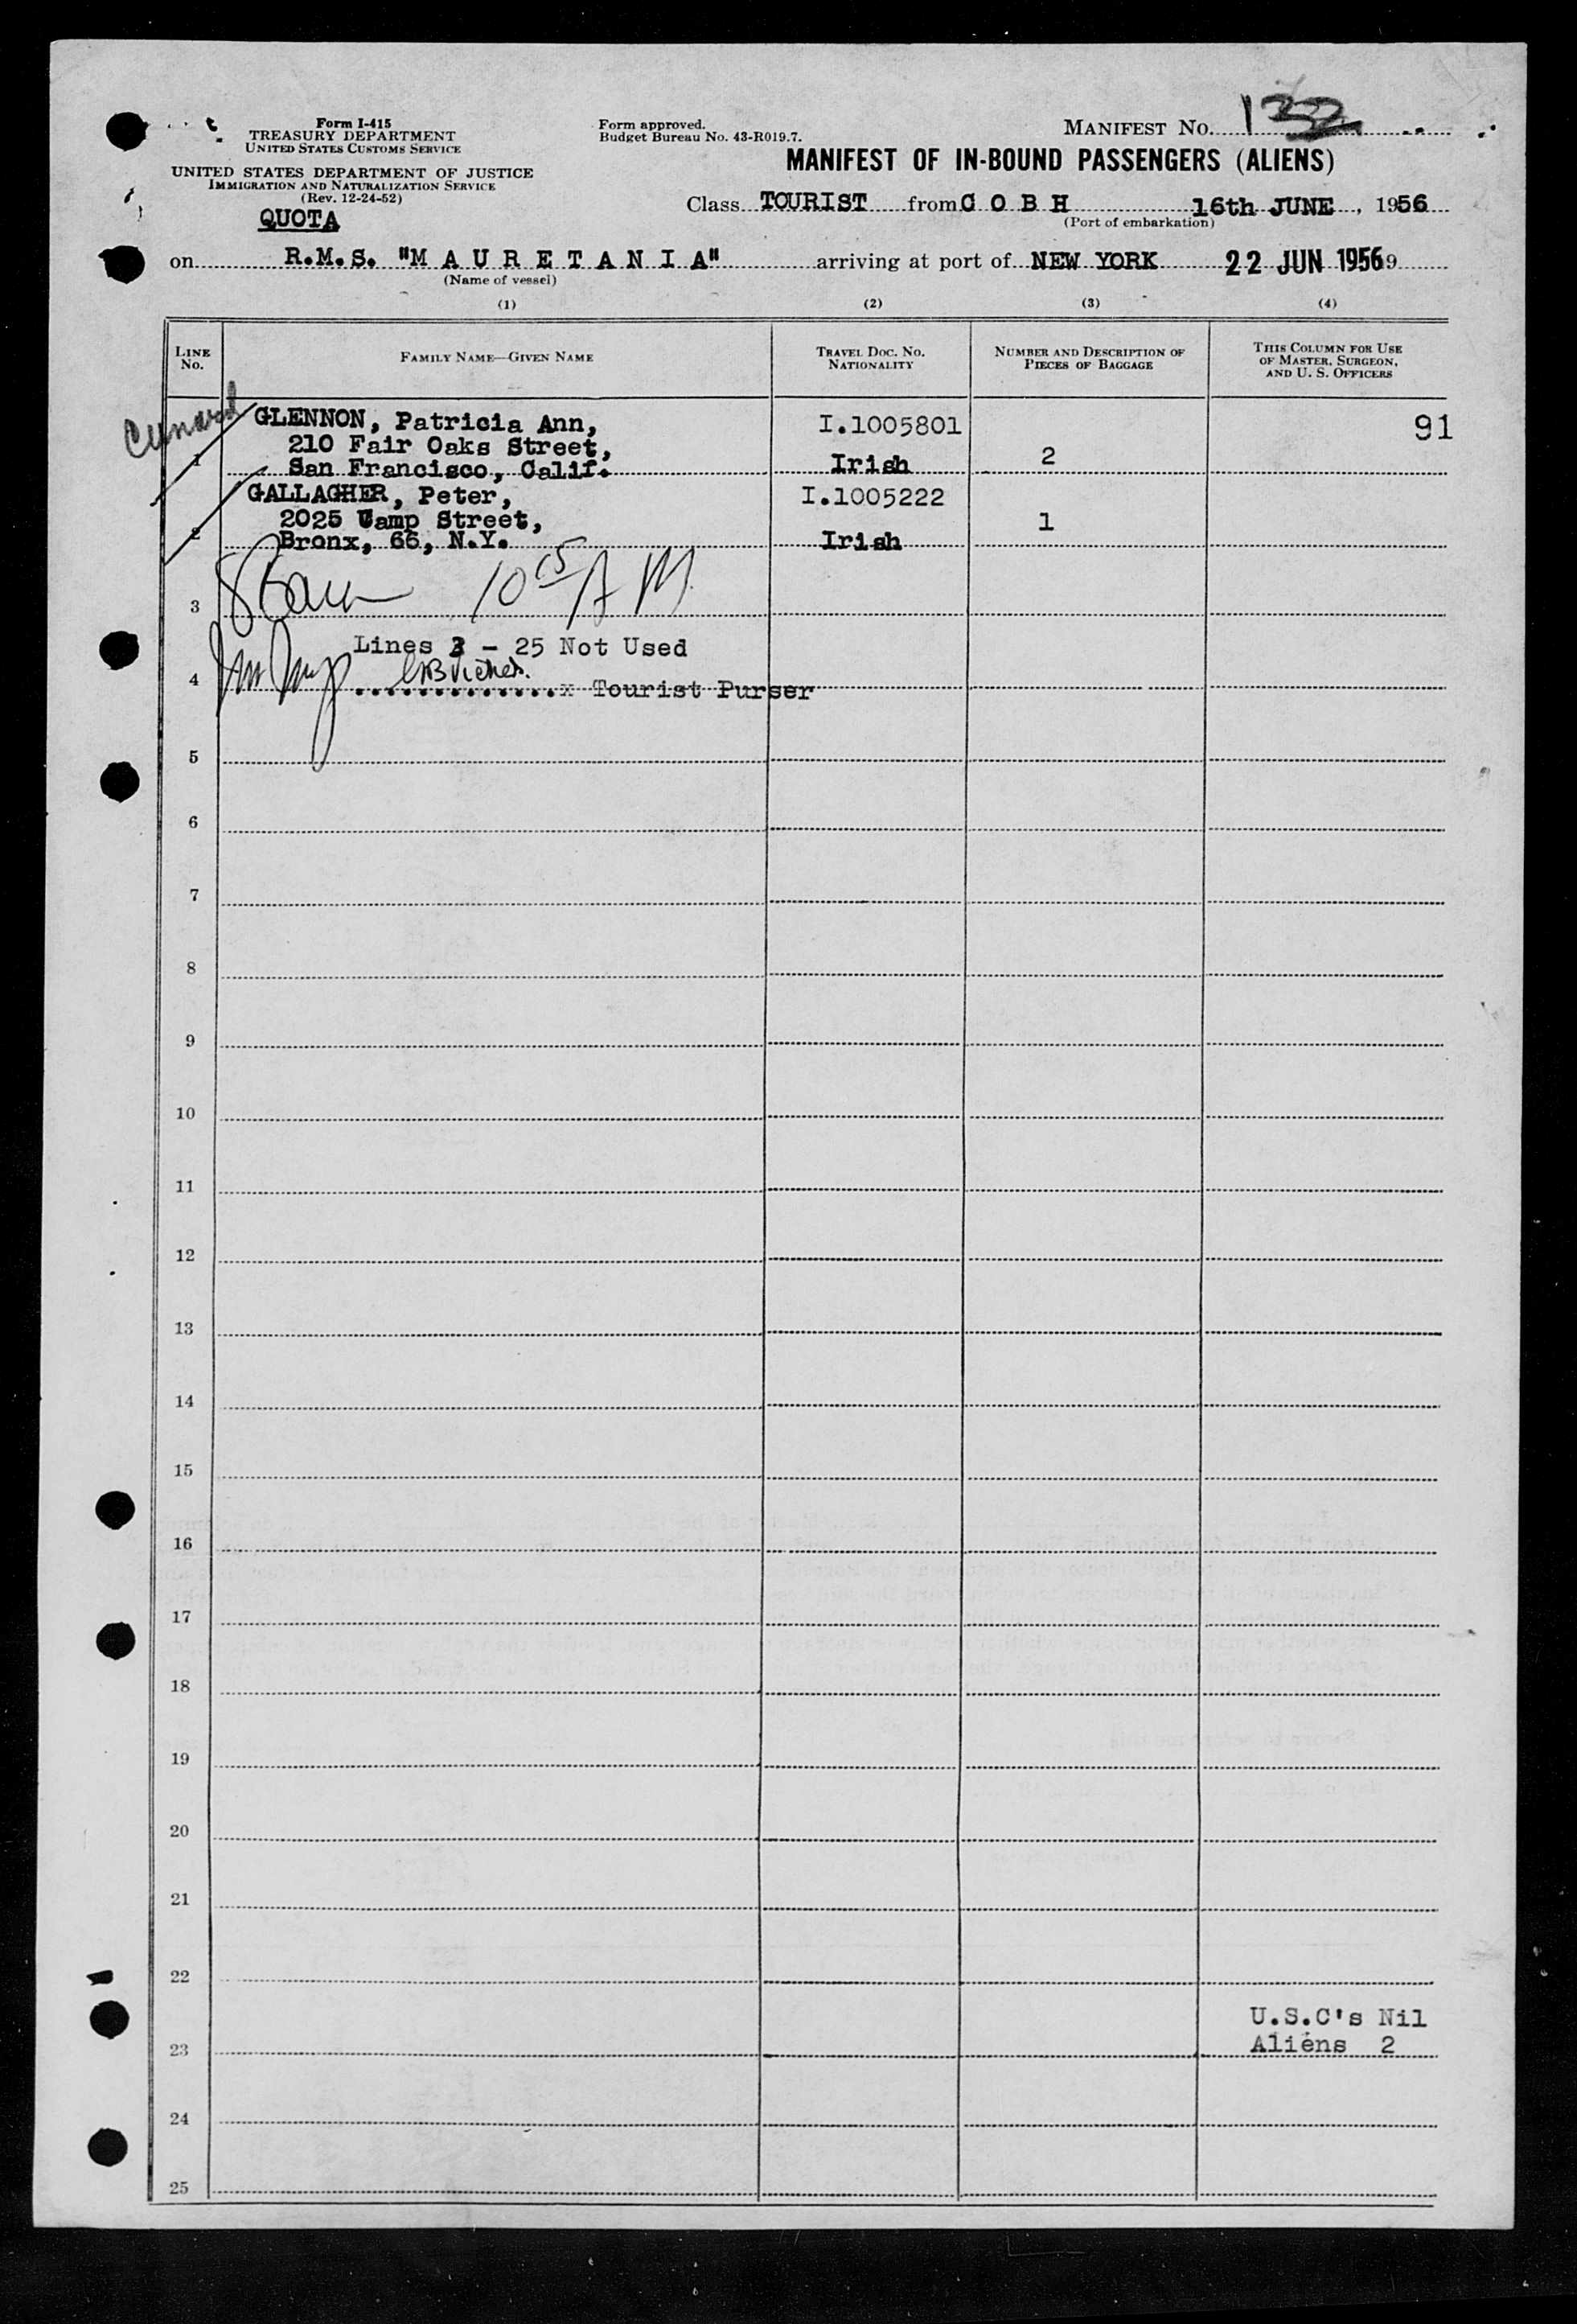 Form I-415
TREASURY DEPARTMENT
UNITED STATES CUSTOMS SERVICE
UNITED STATES DEPARTMENT OF JUSTICE
IMMIGRATION AND NATURALIZATION SERVICE
(Rev. 12-24-52)
QUOTA
Form approved.
Budget Bureau No. 43-R019.7.
MANIFEST No. 132
MANIFEST OF IN-BOUND PASSENGERS (ALIENS)
Class TOURIST from C O B H 16th JUNE, 1956
(Port of embarkation)
on R.M.S. "M A U R E T A N I A" arriving at port of NEW YORK 22 JUN 1956 9
(Name of vessel)
(1) (2) (3) (4)
LINE No. FAMILY NAME—GIVEN NAME TRAVEL DOC. NO. NATIONALITY NUMBER AND DESCRIPTION OF PIECES OF BAGGAGE THIS COLUMN FOR USE OF MASTER, SURGEON, AND U. S. OFFICERS
Cunard
GLENNON, Patricia Ann, I.1005801 91
210 Fair Oaks Street,
1 San Francisco, Calif. Irish 2
GALLAGHER, Peter, I.1005222
2025 Camp Street, 1
2 Bronx, 66, N.Y. Irish
3 10 15 A M
Lines 3 - 25 Not Used
4 x Tourist Purser
5
6
7
8
9
10
11
12
13
14
15
16
17
18
19
20
21
22
U.S.C's Nil
23 Aliens 2
24
25